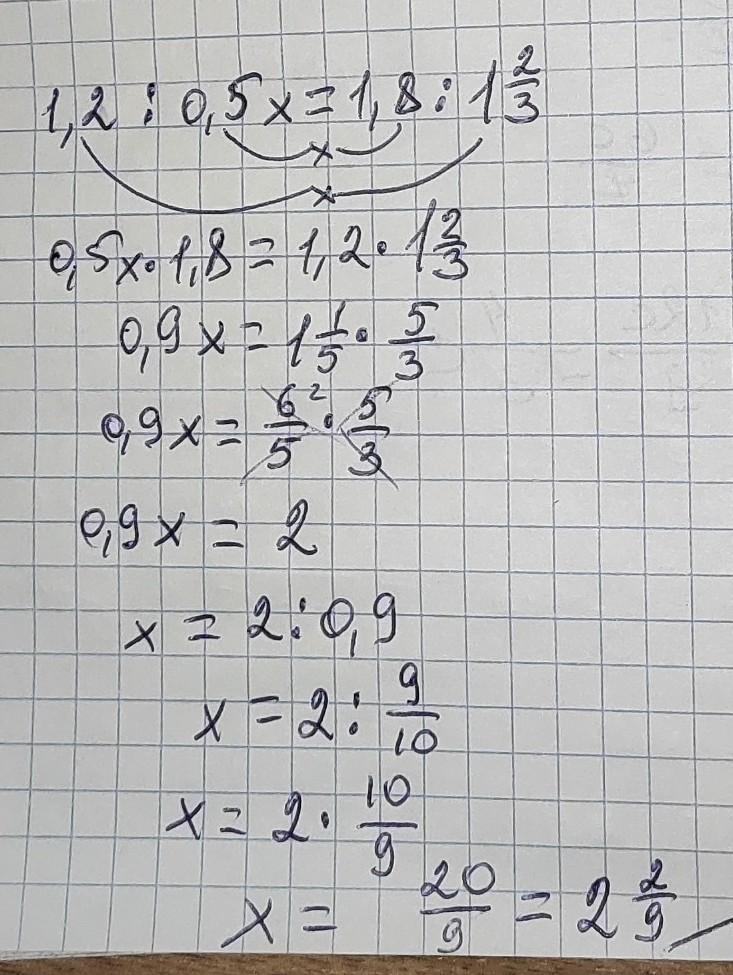 1,2 : 0,5x = 1,8 : 1 2/3
x
x
0,5x · 1,8 = 1,2 · 1 2/3
0,9x = 1 1/5 · 5/3
0,9x = 6/5 ² · 5/3
0,9x = 2
x = 2 : 0,9
x = 2 : 9/10
x = 2 · 10/9
x = 20/9 = 2 2/9